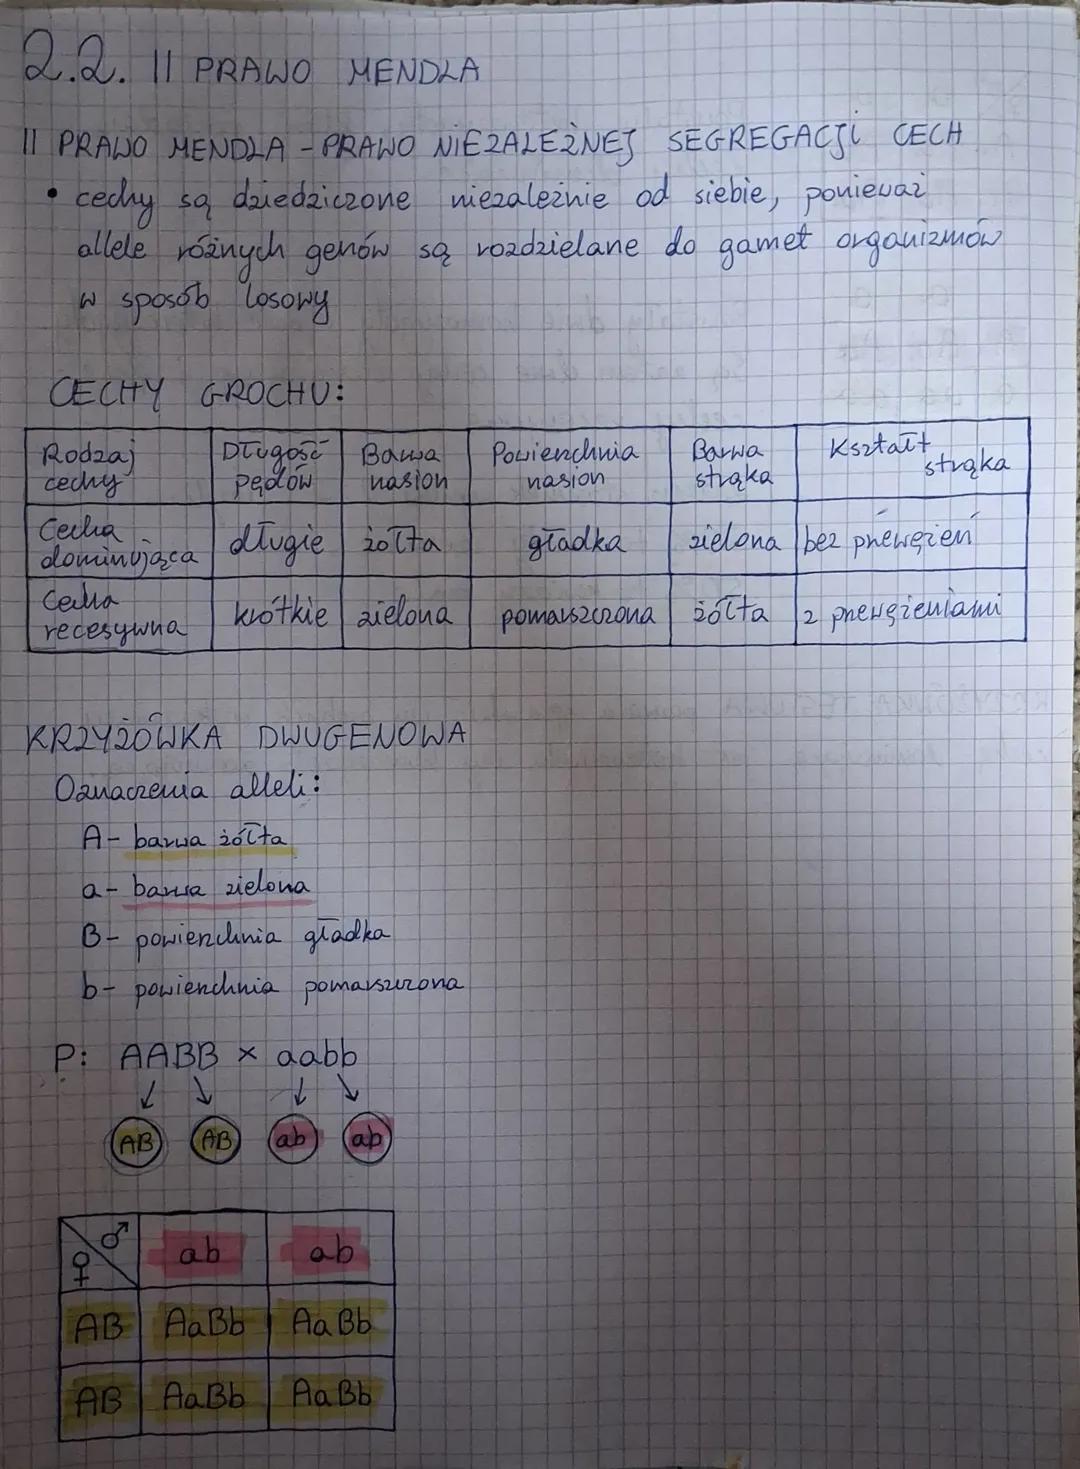 2.2. II PRAWO MENDLA
II PRAWO MENDLA - PRAWO NIEZALEŻNEJ SEGREGACJI CECH
• cechy są dziedziczone niezależnie od siebie, ponieważ
allele różnych genów są rozdzielane do gamet organizmów
w sposób losowy
CECHY GROCHU:
Rodzaj cechy | Długość pędów | Barwa nasion | Powierzchnia nasion | Barwa strąka | Kształt strąka
Cecha dominująca | długie | żółta | gładka | zielona | bez przewężeń
Cecha recesywna | krótkie | zielona | pomarszczona | żółta | z przewężeniami
KRZYŻÓWKA DWUGENOWA
Oznaczenia alleli:
A - barwa żółta
a - barwa zielona
B - powierzchnia gładka
b - powierzchnia pomarszczona
P: AABB × aabb
↓ ↓ ↓ ↓
AB AB ab ab
♀ ♂ | ab | ab
AB | AaBb | AaBb
AB | AaBb | AaBb